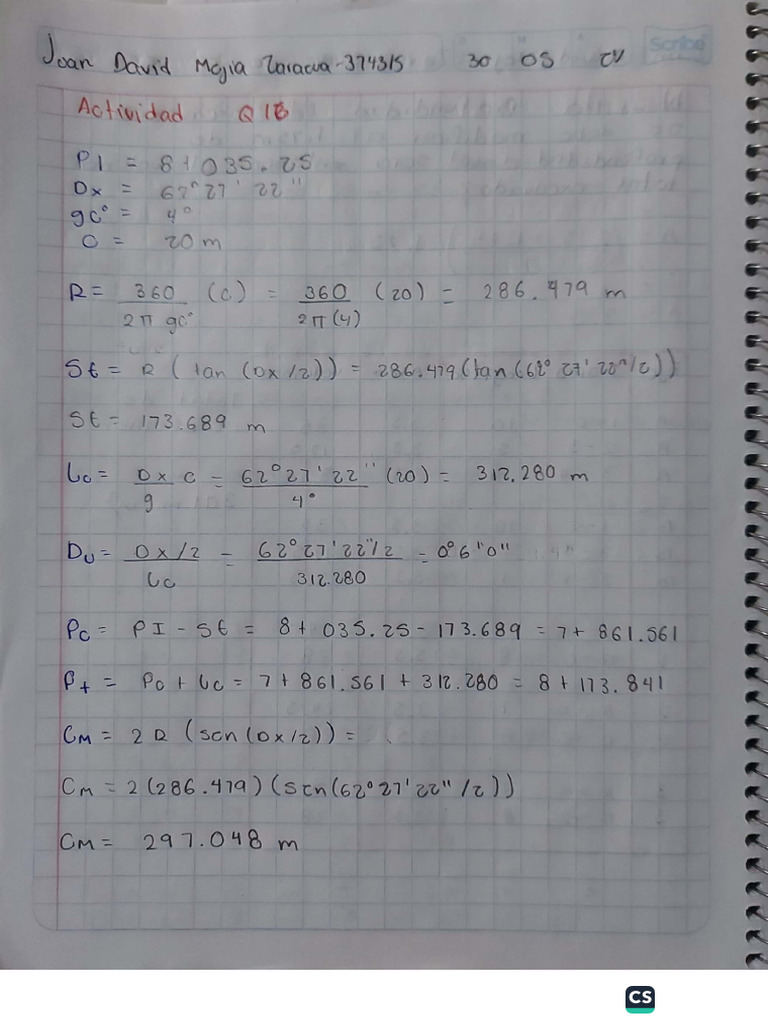 Joan David Mejia -374315 30 05
Scribe
Actividad Q1B
PI = 8+035.25
Dx = 62°27'22"
gc° = 4°
C = 20 m
R = 360/2π gc° (c) = 360/2π(4) (20) = 286.479 m
St = R (tan (Dx/2)) = 286.479 (tan (62° 27' 22"/2))
St = 173.689 m
Lc = Dx c/g = 62°27'22"/4° (20) = 312.280 m
Du = Dx/2/Lc = 62°27'22"/2/312.280 = 0°6"0"
Pc = PI - St = 8+ 035.25 - 173.689 = 7+ 861.561
Pt = Pc + Lc = 7+ 861.561 + 312.280 = 8+173.841
CM = 2 R (sen (Dx/2)) =
CM = 2 (286.479) (sen(62°27'22"/2))
CM = 297.048 m
CS